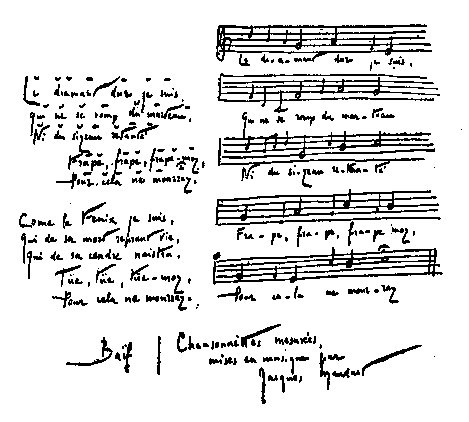 Le diamant dur je suis,
Qui ne se romp du marteau,
Ni du sizeau retanté
Frape, frape, frape moy,
Pour cela ne mourray.
Come le Fenix je suis,
qui de sa mort reprant vie,
qui de sa cendre naistra.
Tüe, tüe, tüe-moy,
Pour cela ne mourray.
Le di-a-mant dur je suis,
Qui ne se romp du mar-teau
Ni du si-zeau re-tan-té
Fra-pe, fra-pe, frap-pe moy,
Pour ce-la ne mour-ray
Baïf
Chansonnettes mesurées,
mises en musique par
Jacques Mauduit